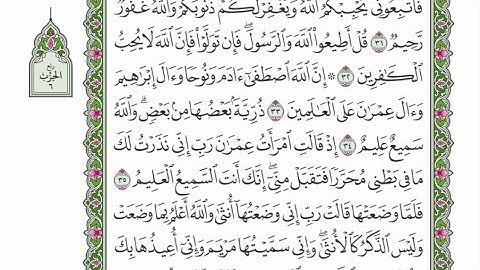 فَٱتَّبِعُونِي يُحْبِبْكُمُ ٱللَّهُ وَيَغْفِرْ لَكُمْ ذُنُوبَكُمْ وَٱللَّهُ غَفُورٌ
رَّحِيمٌ ٣١ قُلْ أَطِيعُوا۟ ٱللَّهَ وَٱلرَّسُولَ فَإِن تَوَلَّوْا۟ فَإِنَّ ٱللَّهَ لَا يُحِبُّ
ٱلْكَٰفِرِينَ ٣٢ ۞ إِنَّ ٱللَّهَ ٱصْطَفَىٰٓ ءَادَمَ وَنُوحًا وَءَالَ إِبْرَٰهِيمَ
وَءَالَ عِمْرَٰنَ عَلَى ٱلْعَٰلَمِينَ ٣٣ ذُرِّيَّةًۢ بَعْضُهَا مِنۢ بَعْضٍ وَٱللَّهُ
سَمِيعٌ عَلِيمٌ ٣٤ إِذْ قَالَتِ ٱمْرَأَتُ عِمْرَٰنَ رَبِّ إِنِّي نَذَرْتُ لَكَ
مَا فِي بَطْنِي مُحَرَّرًا فَتَقَبَّلْ مِنِّيٓ إِنَّكَ أَنتَ ٱلسَّمِيعُ ٱلْعَلِيمُ ٣٥
فَلَمَّا وَضَعَتْهَا قَالَتْ رَبِّ إِنِّي وَضَعْتُهَآ أُنثَىٰ وَٱللَّهُ أَعْلَمُ بِمَا وَضَعَتْ
وَلَيْسَ ٱلذَّكَرُ كَٱلْأُنثَىٰ وَإِنِّي سَمَّيْتُهَا مَرْيَمَ وَإِنِّيٓ أُعِيذُهَا بِكَ
ربع
الحزب
٦